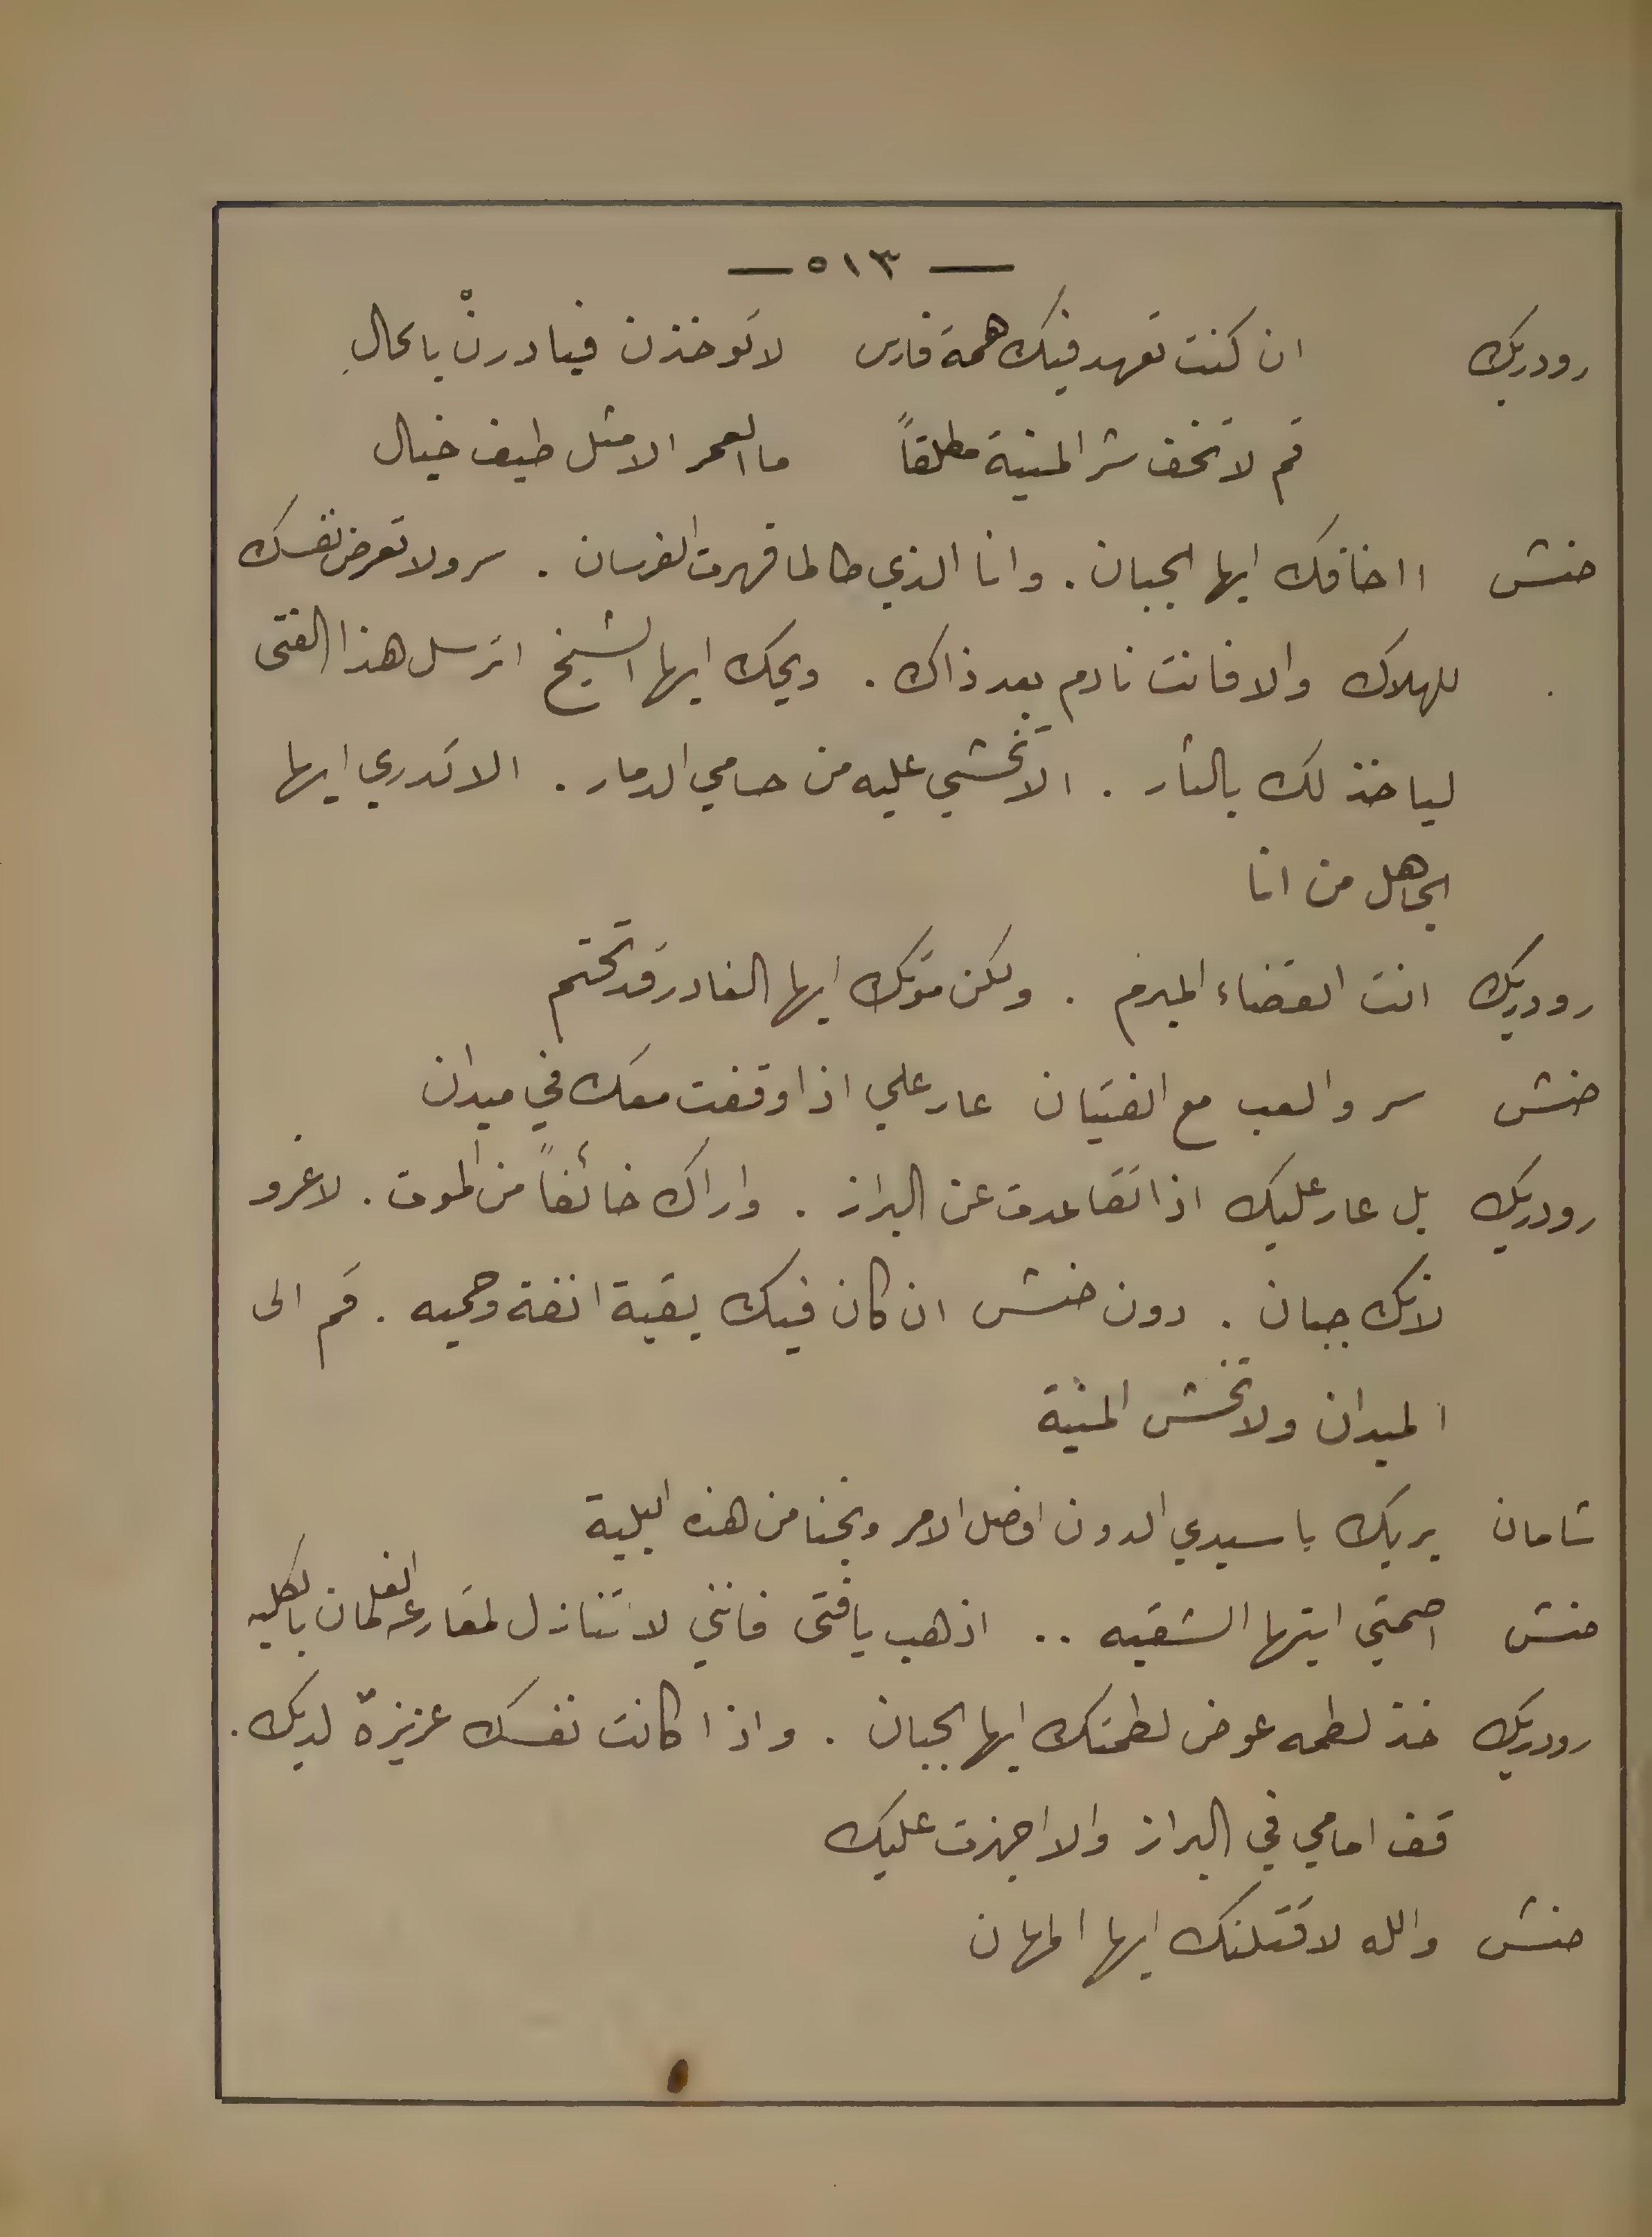 — ٥١٣ —
رودريك ان كنت تعهد فيك همة فارس لا توخذن فبادرنْ بالحالِ
قم لا تخف شر المنية مطلقاً ما العمر الا مثل طيف خيال
حنش ااخافك ايها الجبان . وانا الذي طالما قهرت الفرسان . سر ولا تعرض نفسك
للهلاك والا فانت نادم بعد ذاك . ويحك ايها الشيخ اترسل هذا الفتى
لياخذ لك بالثأر . الا تخشي عليه من حامي الدمار . الا تدري ايها
الجاهل من انا
رودريك انت القضاء المبرم . ولكن موتك ايها الغادر قد تحتم
حنش سر والعب مع الفتيان عار علي اذا وقفت معك في ميدان
رودريك بل عار عليك اذا تقاعدت عن البراز . واراك خائفاً من الموت . لا غرو
لانك جبان . دون حنش ان كان فيك بقية انفة وحميه . قم الى
الميدان ولا تخش المنية
شامان بربك يا سيدي الدون افضل الامر ونجنا من هذه البلية
حنش اصمتي ايتها الشقيه .. اذهب يا فتى فانني لا تنازل لمقارعه الغلمان بالكليه
رودريك خذ لطمه عوض لطمتك ايها الجبان . واذا كانت نفسك عزيزةٌ لديك .
قف امامي في البراز والا اجهزت عليك
حنش والله لاقتلنك ايها المهان